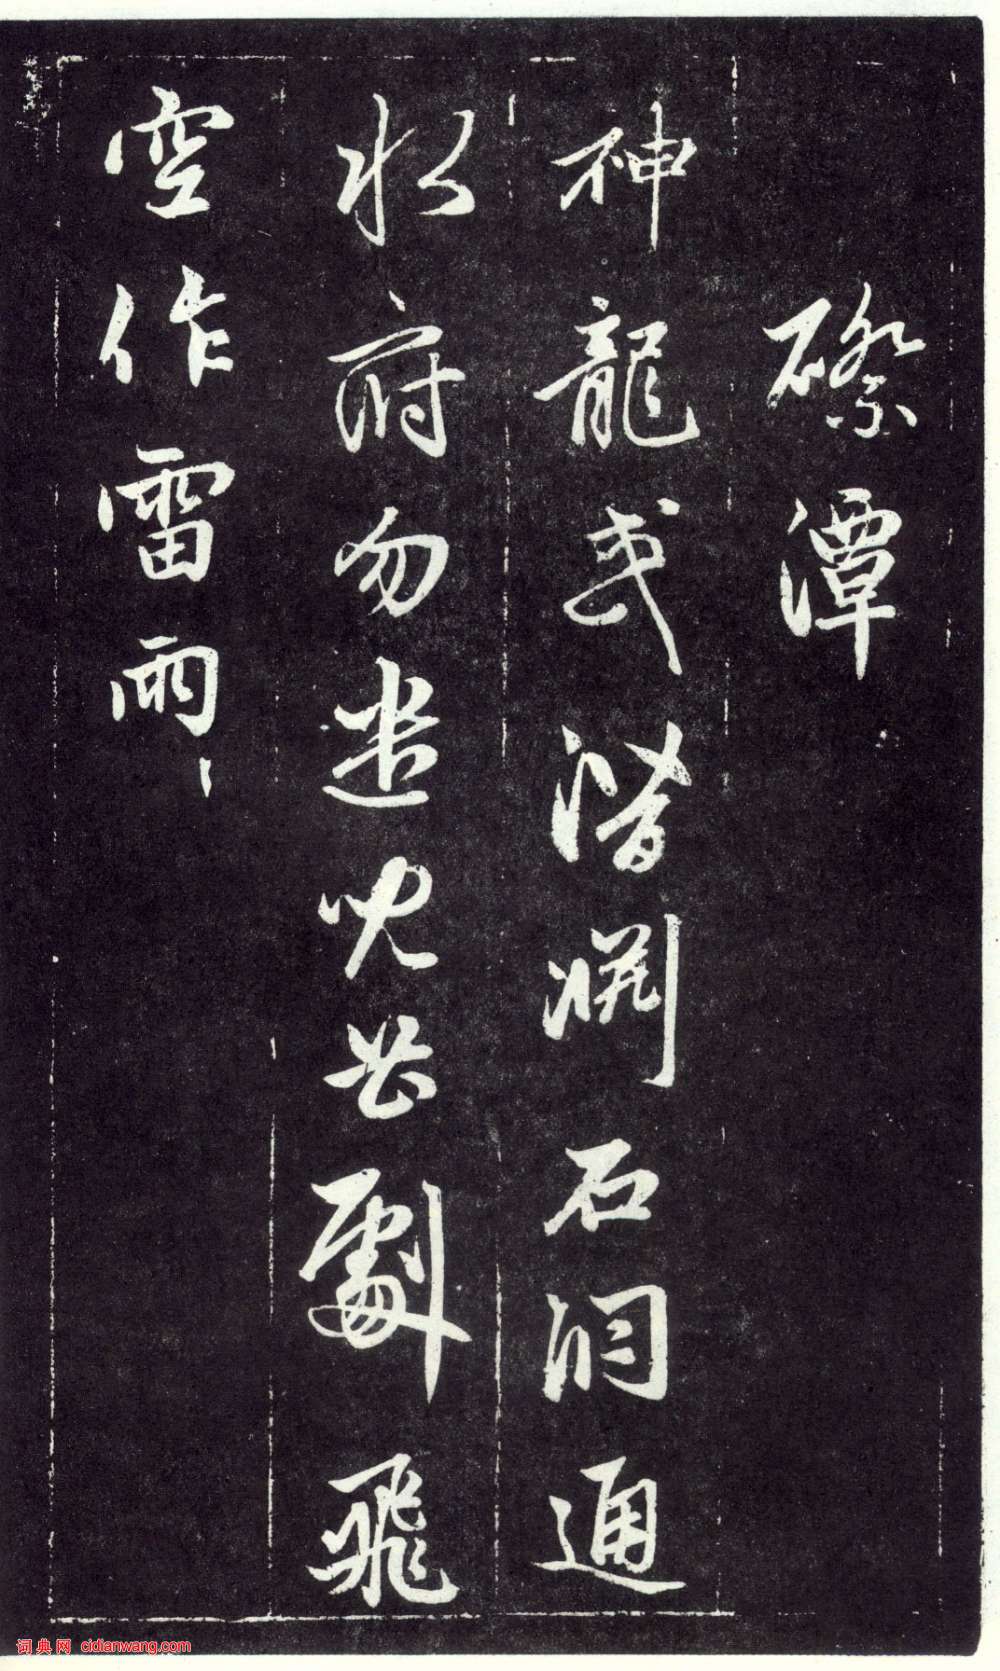 磜潭
神龍或潛淵石洞通
水府勿遣吹劇飛
空作雷雨
词典网 cidianwang.com